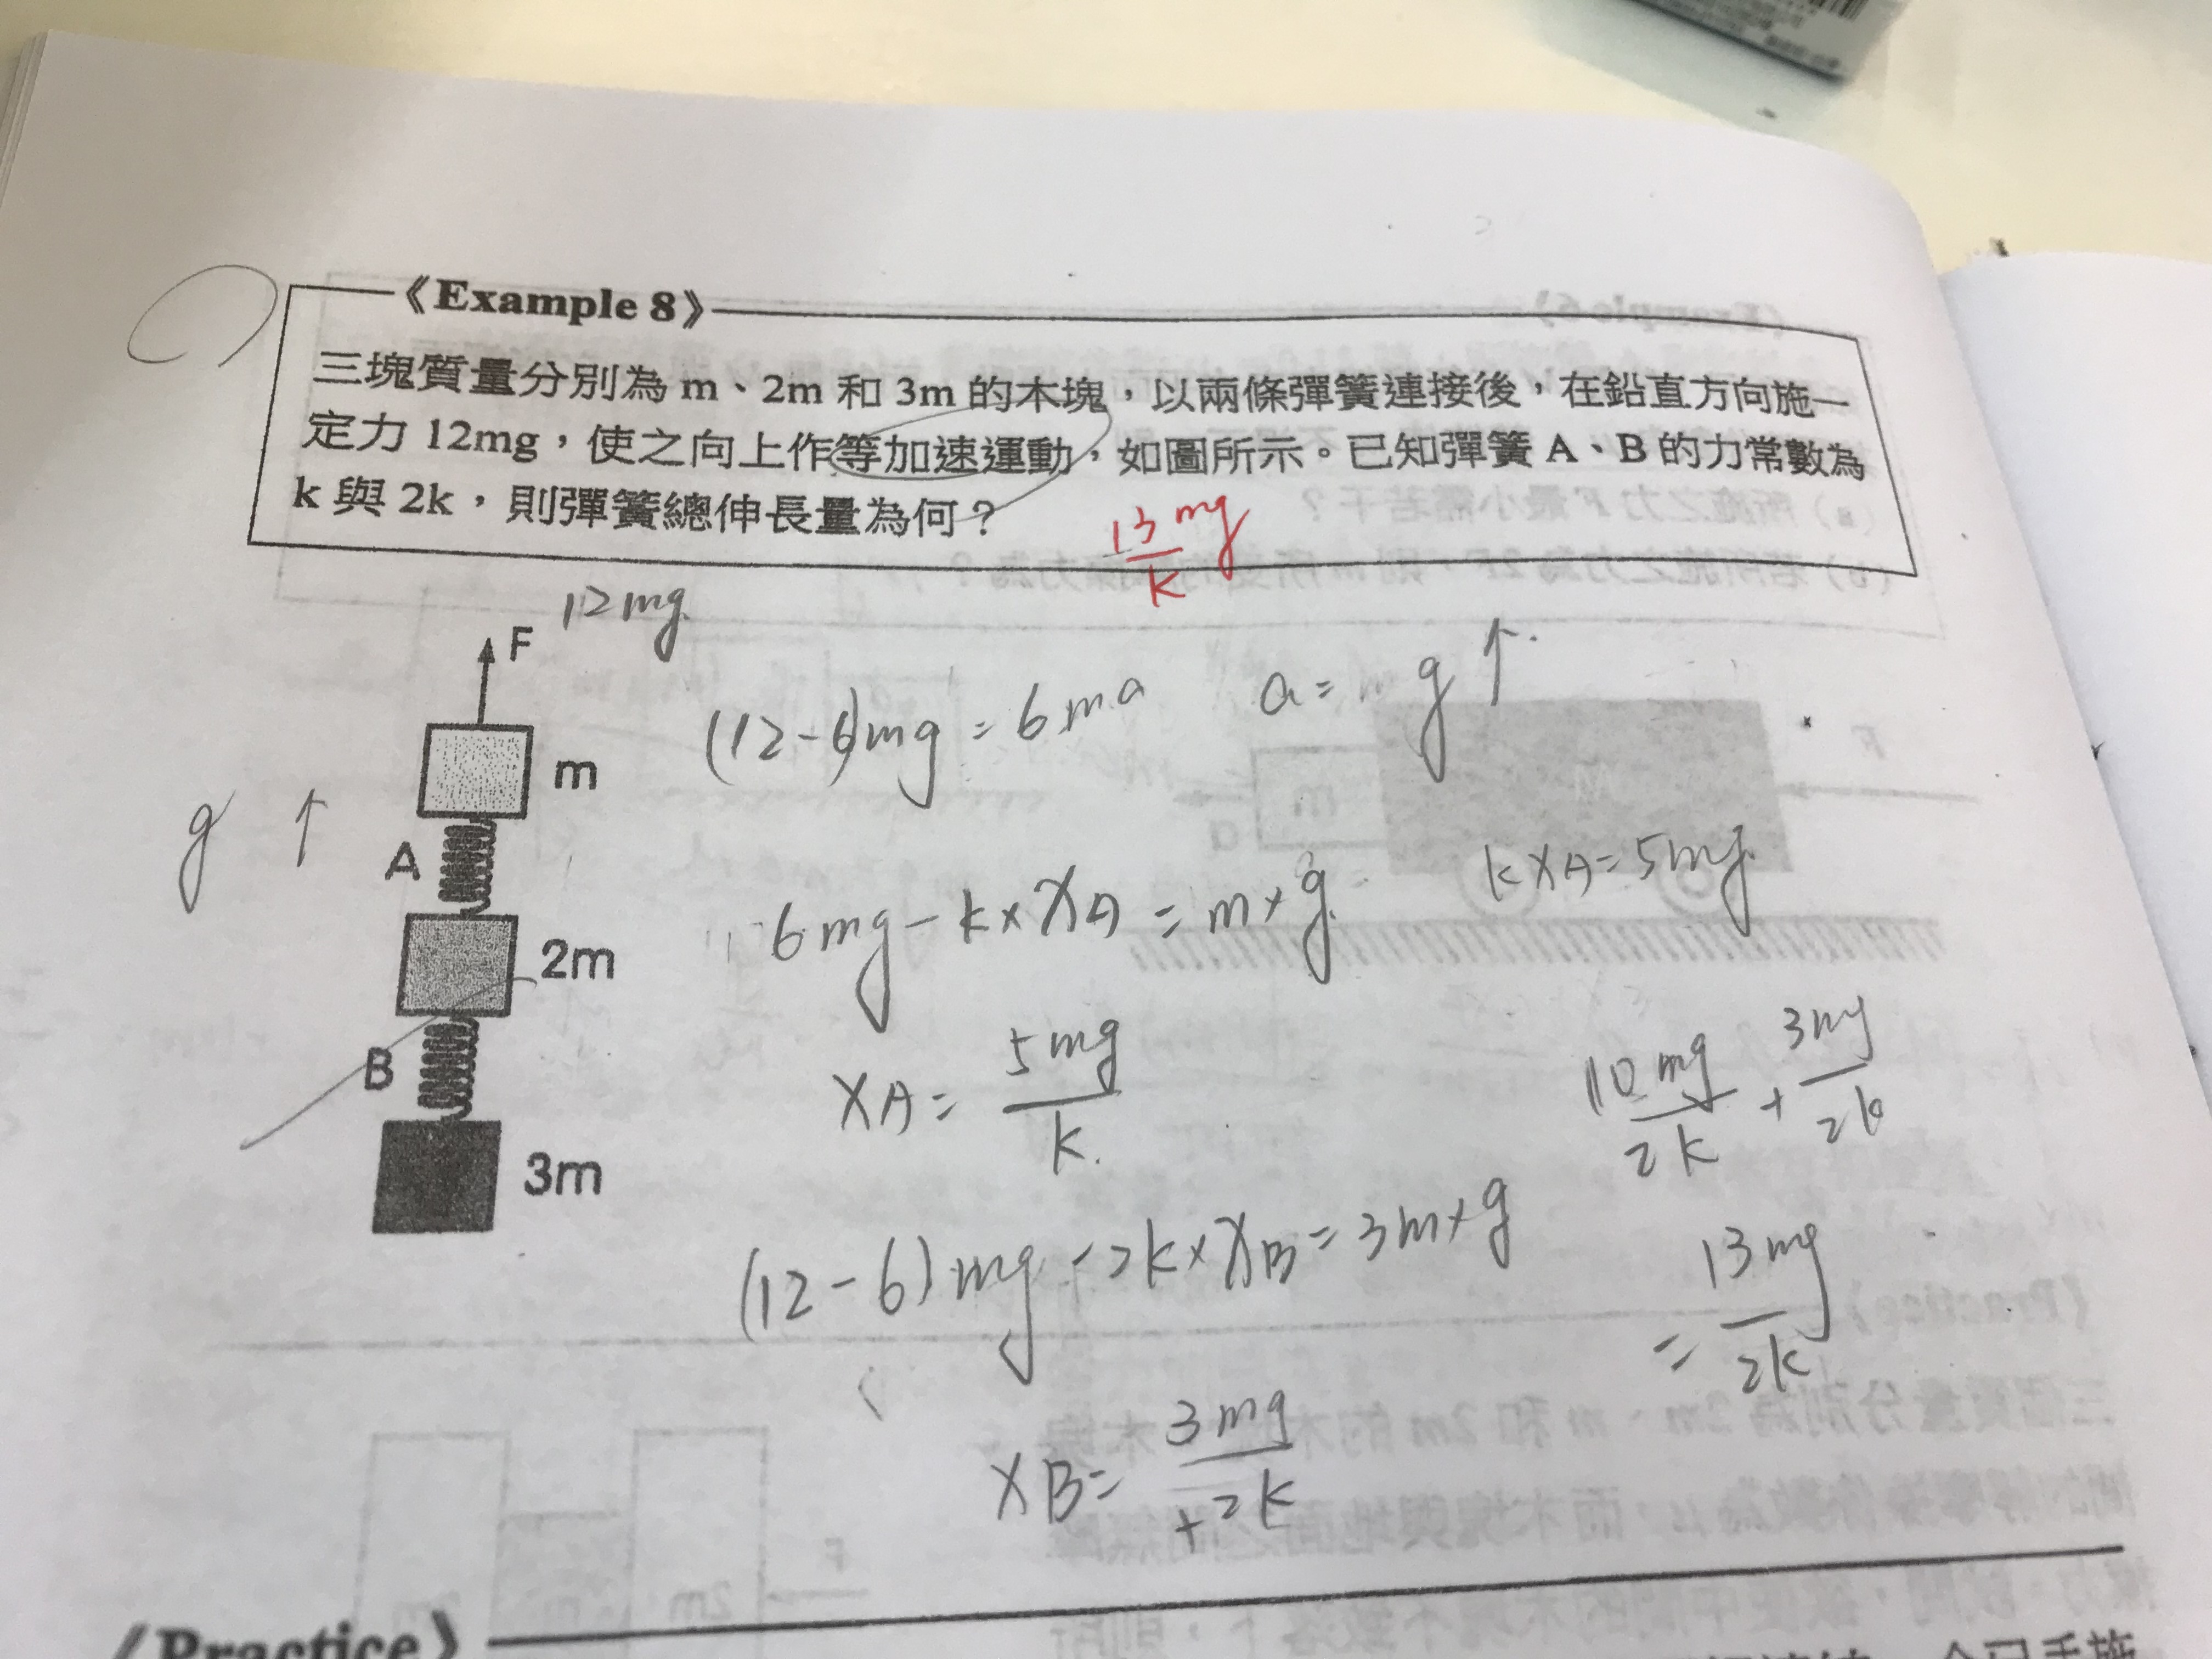 《Example 8》
三塊質量分別為 m、2m 和 3m 的木塊，以兩條彈簧連接後，在鉛直方向施一
定力 12mg，使之向上作等加速運動，如圖所示。已知彈簧 A、B 的力常數為
k 與 2k，則彈簧總伸長量為何？
13mg/k
12mg
F
(12-6)mg = 6ma a = g↑
m
g ↑
A
6mg - k×XA = m×g kXA = 5mg
2m
XA = 5mg/k
10mg/2k + 3mg/2k
B
3m
(12-6)mg - 2k×XB = 3m×g
= 13mg/2k
XB = 3mg/+2k
《Practice》